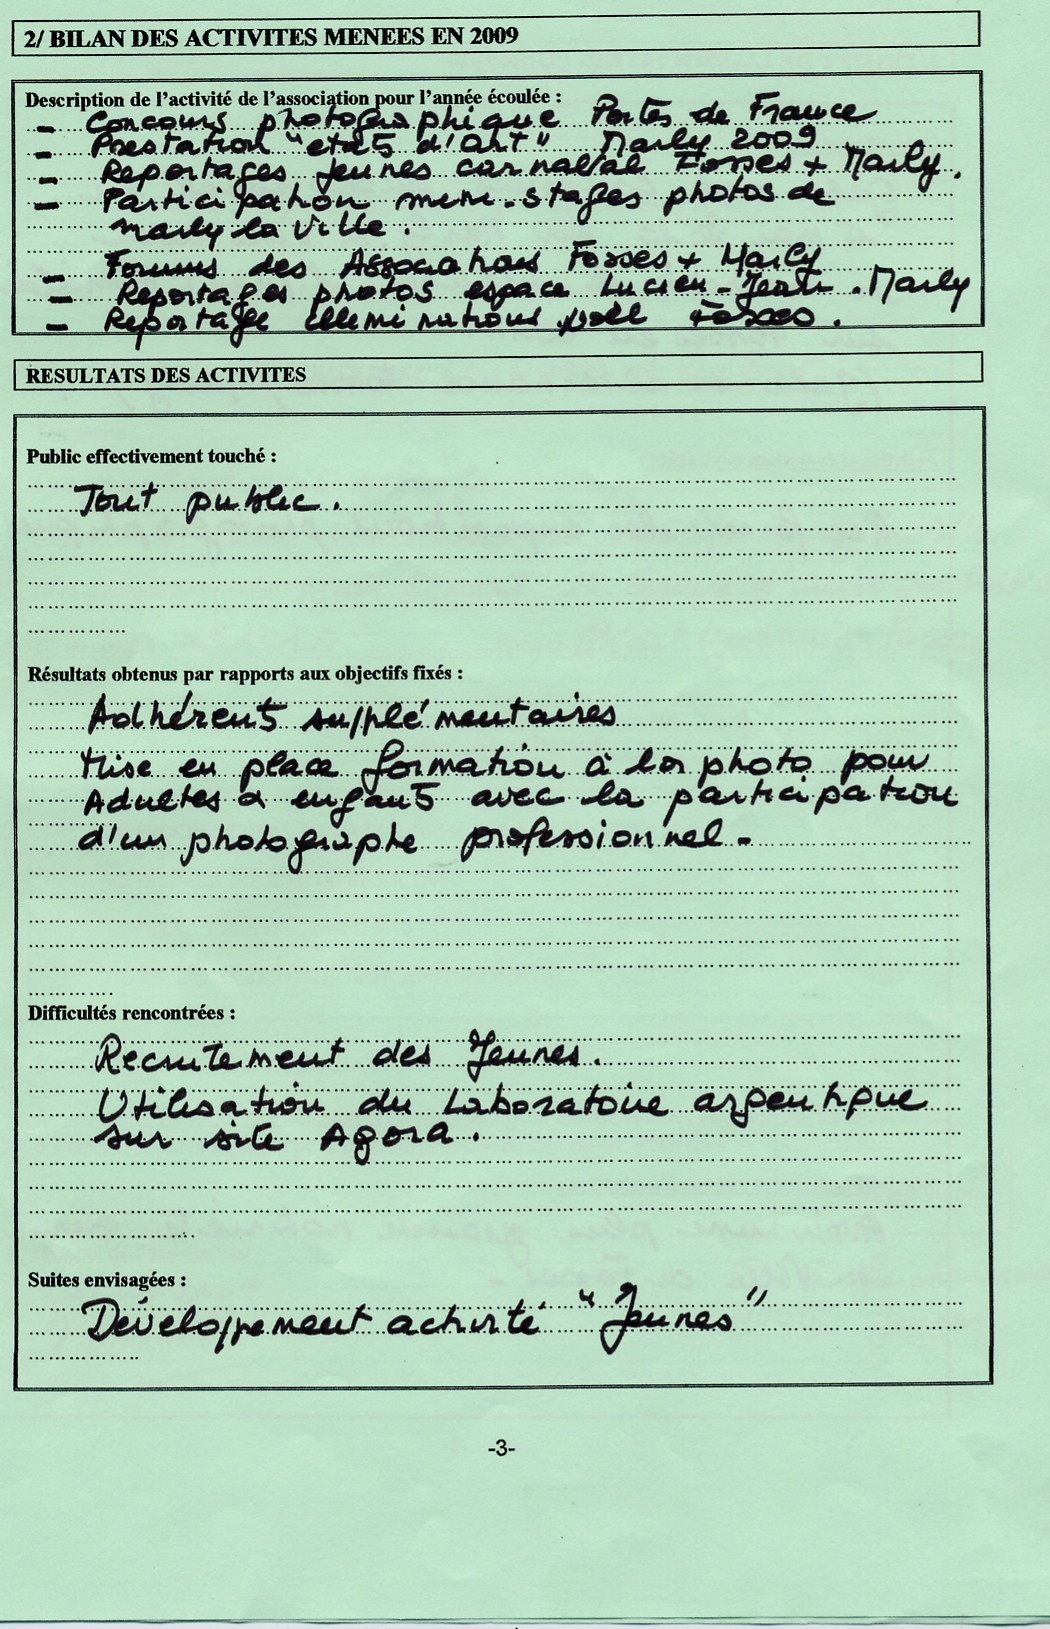 2/ BILAN DES ACTIVITES MENEES EN 2009
Description de l'activité de l'association pour l'année écoulée :
- Concours photographique Portes de France
- Prestation "etats d'art" Marly 2009
- Reportages jeunes carnaval Fosses + Marly.
- Participation mini-stages photos de
marly la ville.
- Forums des Associations Fosses + Marly
- Reportages photos espace Lucien-Jean. Marly
- Reportage illuminations Noël Fosses.
RESULTATS DES ACTIVITES
Public effectivement touché :
Tout public.
Résultats obtenus par rapports aux objectifs fixés :
Adhérents supplémentaires
Mise en place formation à la photo pour
Adultes & enfants avec la participation
d'un photographe professionnel-
Difficultés rencontrées :
Recrutement des Jeunes.
Utilisation du Laboratoire argentique
sur site Agora.
Suites envisagées :
Développement activité "Jeunes"
-3-